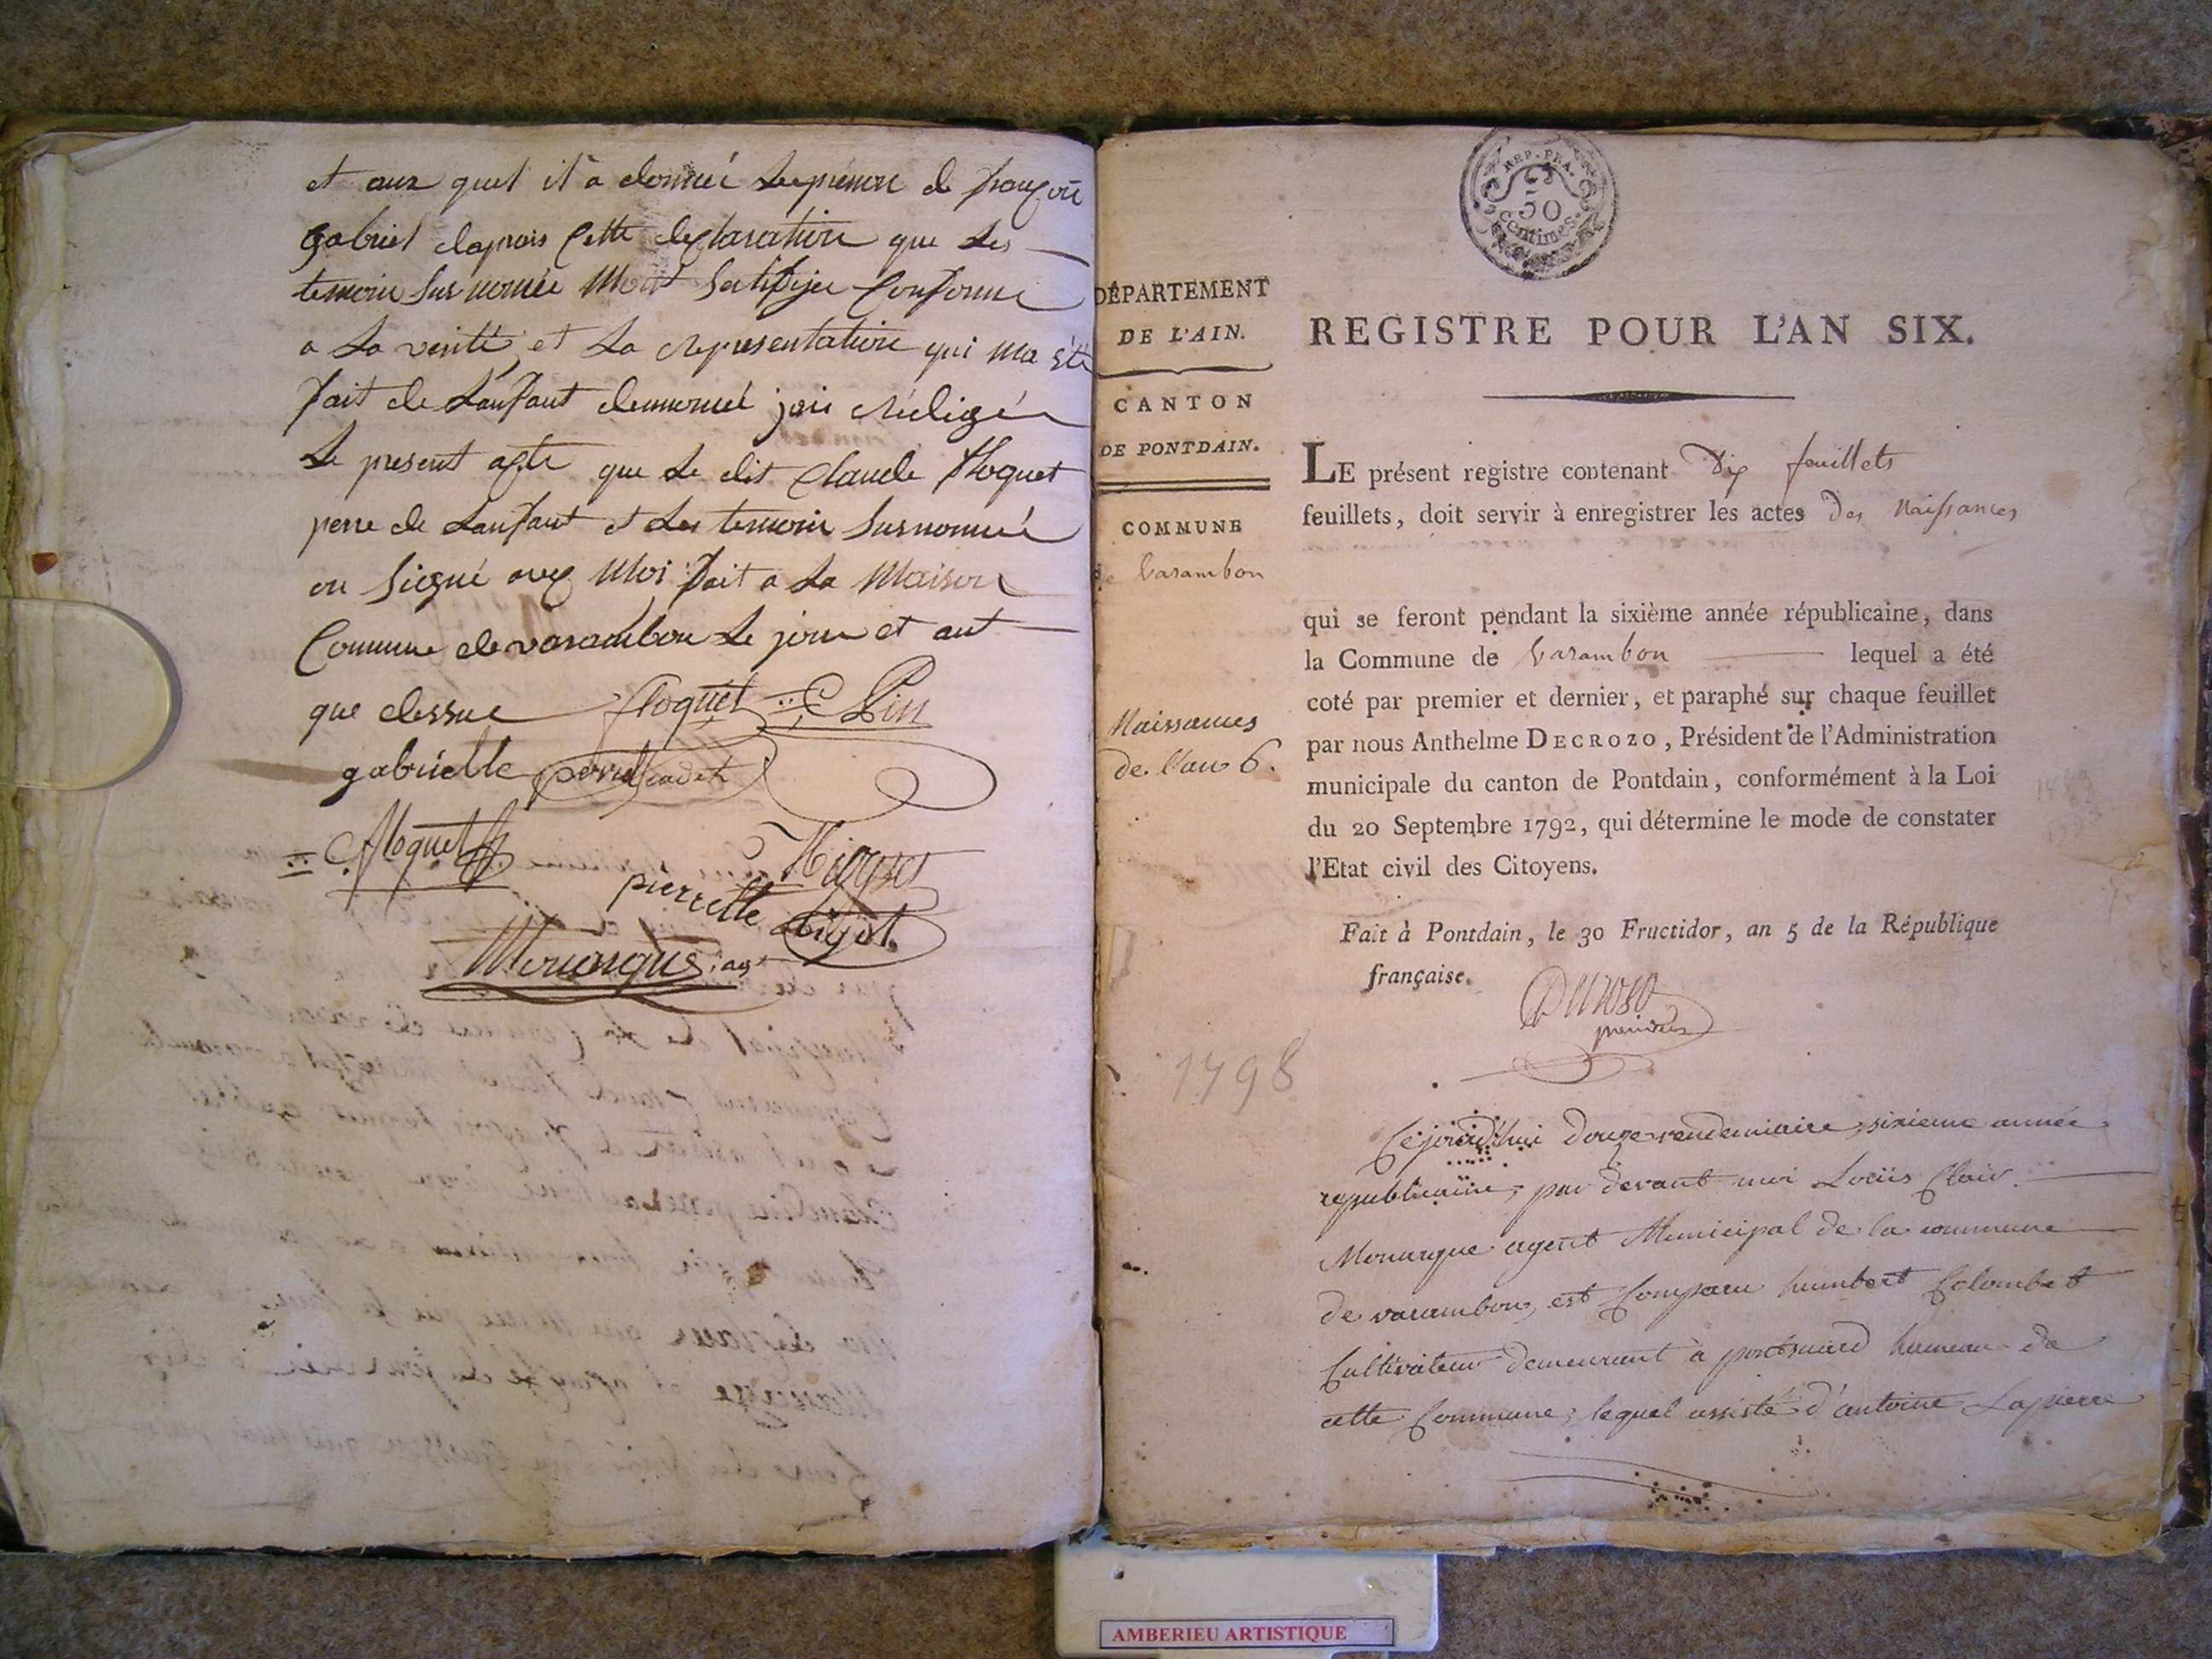 et aux quel il a donnée Le prenon de françois
gabriel daprais Cette declaration que Les
temoin Surnomée Mont Sertifiјee Conforme
a La verité et La representation qui ma été
fait de Lanfant denomé jaie redigé
Le present acte que Le dit Claude floquet
perre de Lanfant et Les temoin Surnomée
on Siegné avec Moi fait a La Maison
Commune de varambon Le jour et ant
que dessue floquet C Pin
gabrielle cadet
C. floquet
pierrette Ligot
Monargue, agt
REP. FRA.
50
Centimes.
DÉPARTEMENT
DE L'AIN.
CANTON
DE PONTDAIN.
COMMUNE
de Varambon
Naissances
de l'an 6.
1798
REGISTRE POUR L'AN SIX.
LE présent registre contenant Dix feuillets
feuillets, doit servir à enregistrer les actes Des Naissances
qui se feront pendant la sixième année républicaine, dans
la Commune de Varambon lequel a été
coté par premier et dernier, et paraphé sur chaque feuillet
par nous Anthelme DECROZO, Président de l'Administration
municipale du canton de Pontdain, conformément à la Loi
du 20 Septembre 1792, qui détermine le mode de constater
l'Etat civil des Citoyens.
Fait à Pontdain, le 30 Fructidor, an 5 de la République
française.
Cejourd'hui douze vendemiaire sixieme année
republicaine, par devant moi Loüis Clair
Monargue agent Municipal de la commune
de varambon, est Comparu humbert Colombet
Cultivateur demeurant à hameau de
cette Commune, lequel assisté d'antoine Lapierre
AMBERIEU ARTISTIQUE